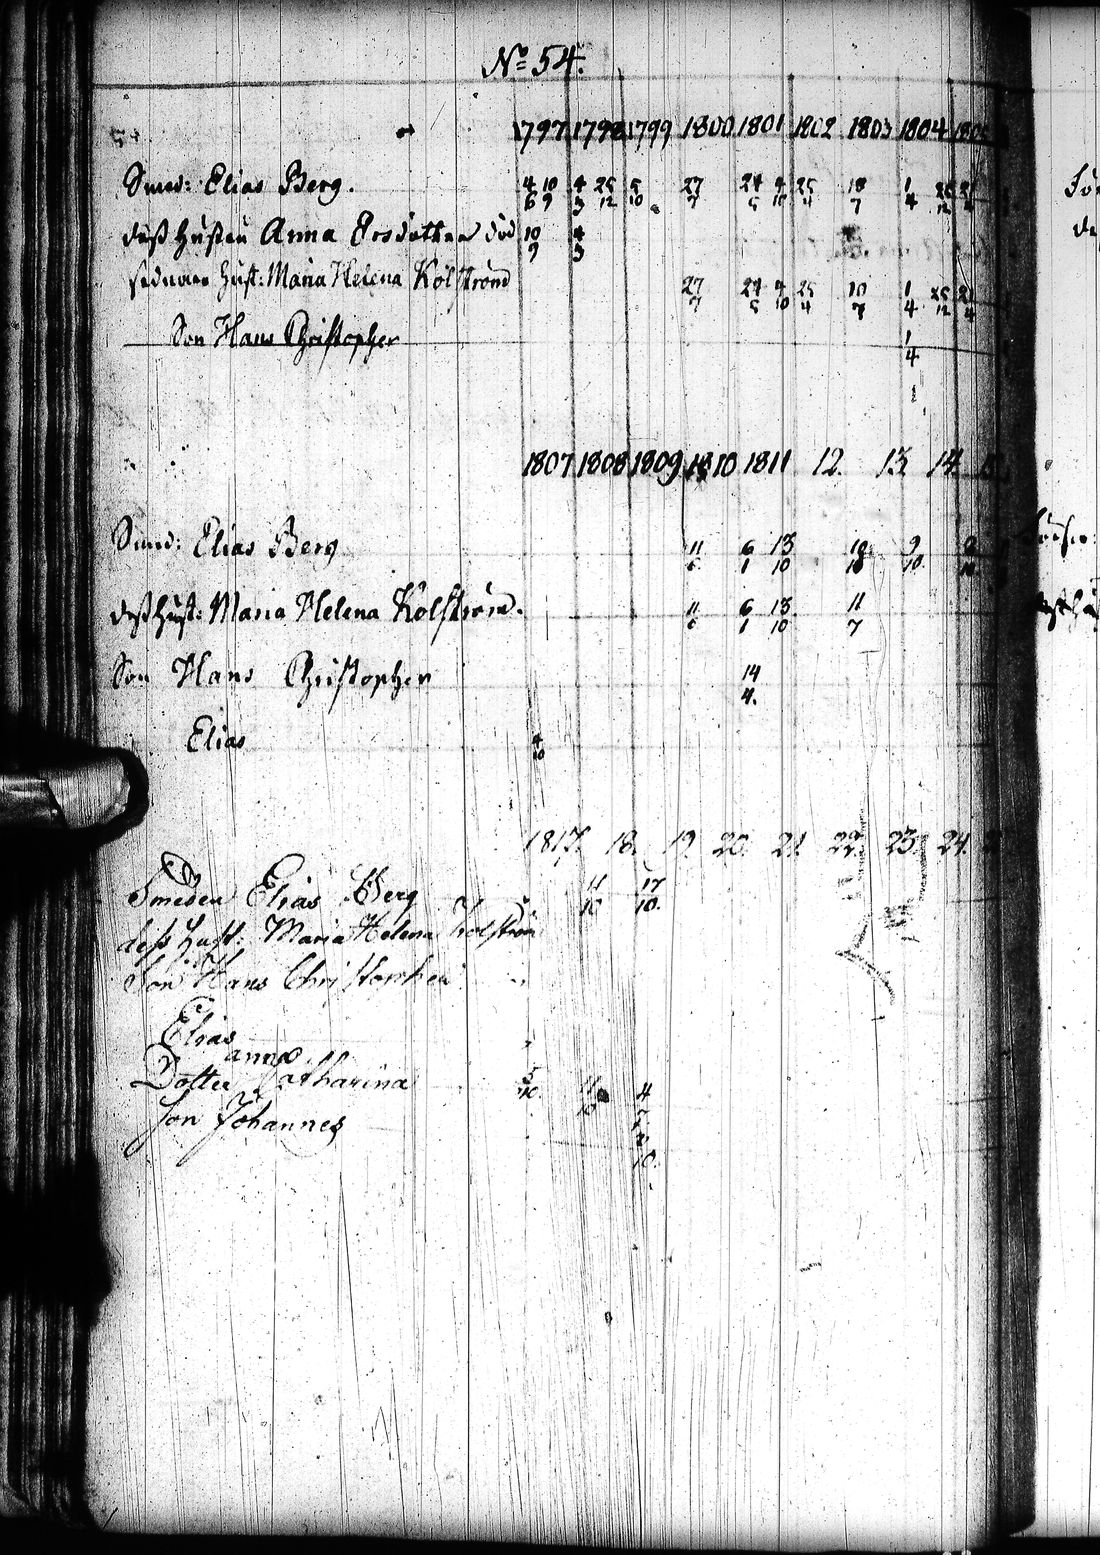 No 54.
1797 1798 1799 1800 1801 1802 1803 1804 1805
Smed: Elias Berg. 4/6 10/9 4/3 25/12 5/10 27/7 24/5 4/10 25/4 18/7 1/4 26/12 21/4
dess Hustru Anna Ersdotter död 10/9 4/3
sednare Hust: Maria Helena Kolström 27/7 24/5 4/10 25/4 10/7 1/4 26/12 21/4
Son Hans Christopher 1/4
1807 1808 1809 1810 1811 12. 13. 14.
Smed: Elias Berg 11/6 6/1 13/10 9/10.
dess Hust: Maria Helena Kolström. 11/6 6/1 13/10 11/7
Son Hans Christopher 14/4.
Elias 4/10
1817. 18. 19. 20. 21. 22. 23. 24.
Smeden Elias Berg 11/10 17/10.
dess Hust: Maria Helena Kolström
Son Hans Christopher
Elias
anna
Dotter Catharina
Son Johannes